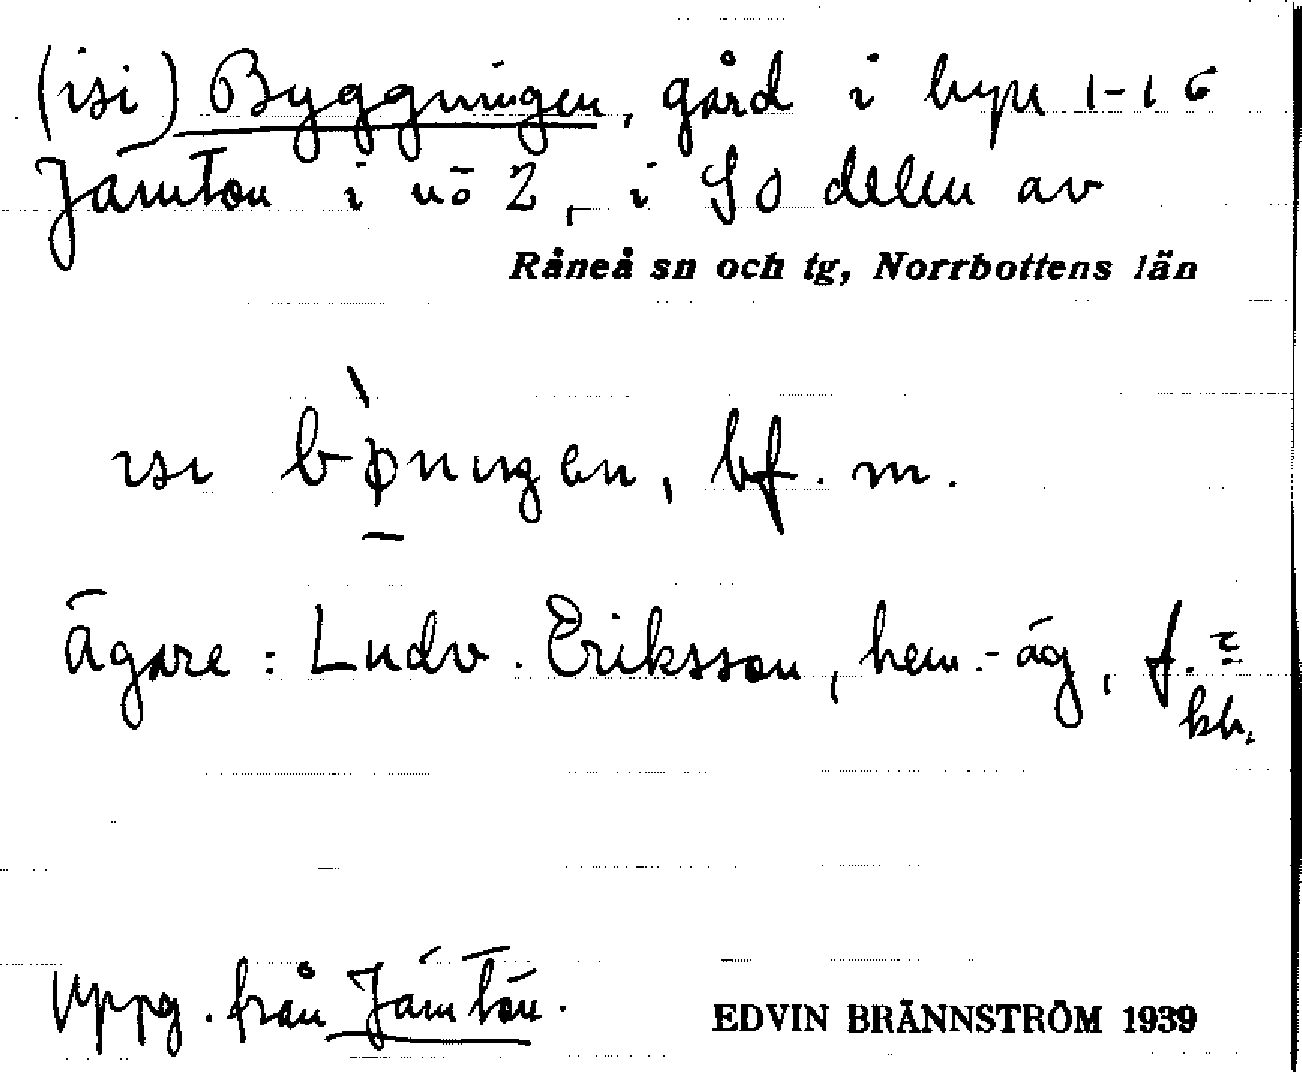 (isi) Byggningen, gård i byn 1-16
Jämtön i nö 2, i SO delen av
Råneå sn och tg, Norrbottens län
ısı bø̀ningen, bf. m.
ägare: Ludv. Eriksson, hem.-äg,
kh.
Uppg. från Jämtön.
EDVIN BRÄNNSTRÖM 1939